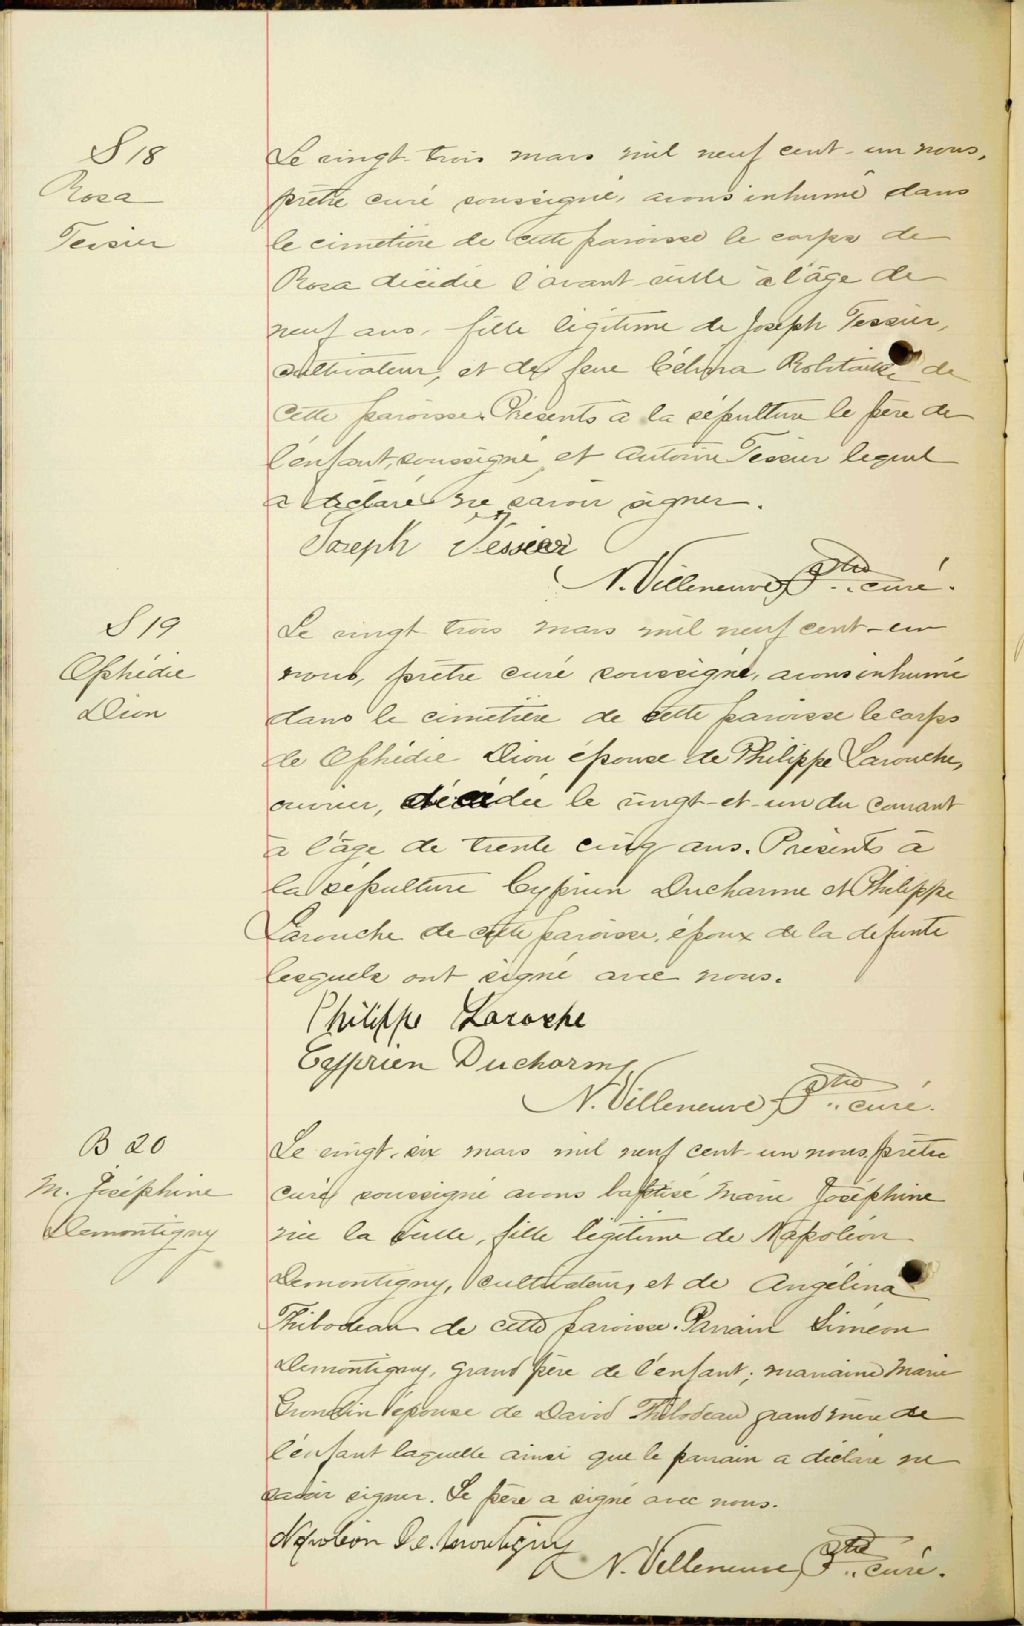 S 18
Rosa
Tessier
Le vingt-trois mars mil neuf cent-un nous,
prêtre curé soussigné, avons inhumé dans
le cimetière de cette paroisse le corps de
Rosa décédée l'avant-veille à l'âge de
neuf ans, fille légitime de Joseph Tessier,
cultivateur, et de feue Célina Robitaille de
cette paroisse. Présents à la sépulture le père de
l'enfant, soussigné, et Antoine Tessier lequel
a déclaré ne savoir signer.
Joseph Téssier
N. Villeneuve, Ptre curé.
S 19
Ophédie
Dion
Le vingt-trois mars mil neuf cent-un
nous, prêtre curé soussigné, avons inhumé
dans le cimetière de cette paroisse le corps
de Ophédie Dion épouse de Philippe Larouche,
ouvrier, décédée le vingt-et-un du courant
à l'âge de trente cinq ans. Présents à
la sépulture Cyprien Ducharme et Philippe
Larouche de cette paroisse, époux de la defunte
lesquels ont signé avec nous.
Philippe Laroche
Cyprien Ducharme
N. Villeneuve, Ptre curé.
B 20
M. Joséphine
Demontigny
Le vingt-six mars mil neuf cent-un nous, prêtre
curé soussigné avons baptisé Marie Joséphine
née la veille, fille légitime de Napoléon
Demontigny, cultivateur, et de Angélina
Thibodeau de cette paroisse. Parrain Siméon
Demontigny, grand père de l'enfant; marraine Marie
Grondin épouse de David Thibodeau grand'mère de
l'enfant laquelle ainsi que le parrain a déclaré ne
savoir signer. Le père a signé avec nous.
Napoléon De.montigny
N. Villeneuve, Ptre curé.